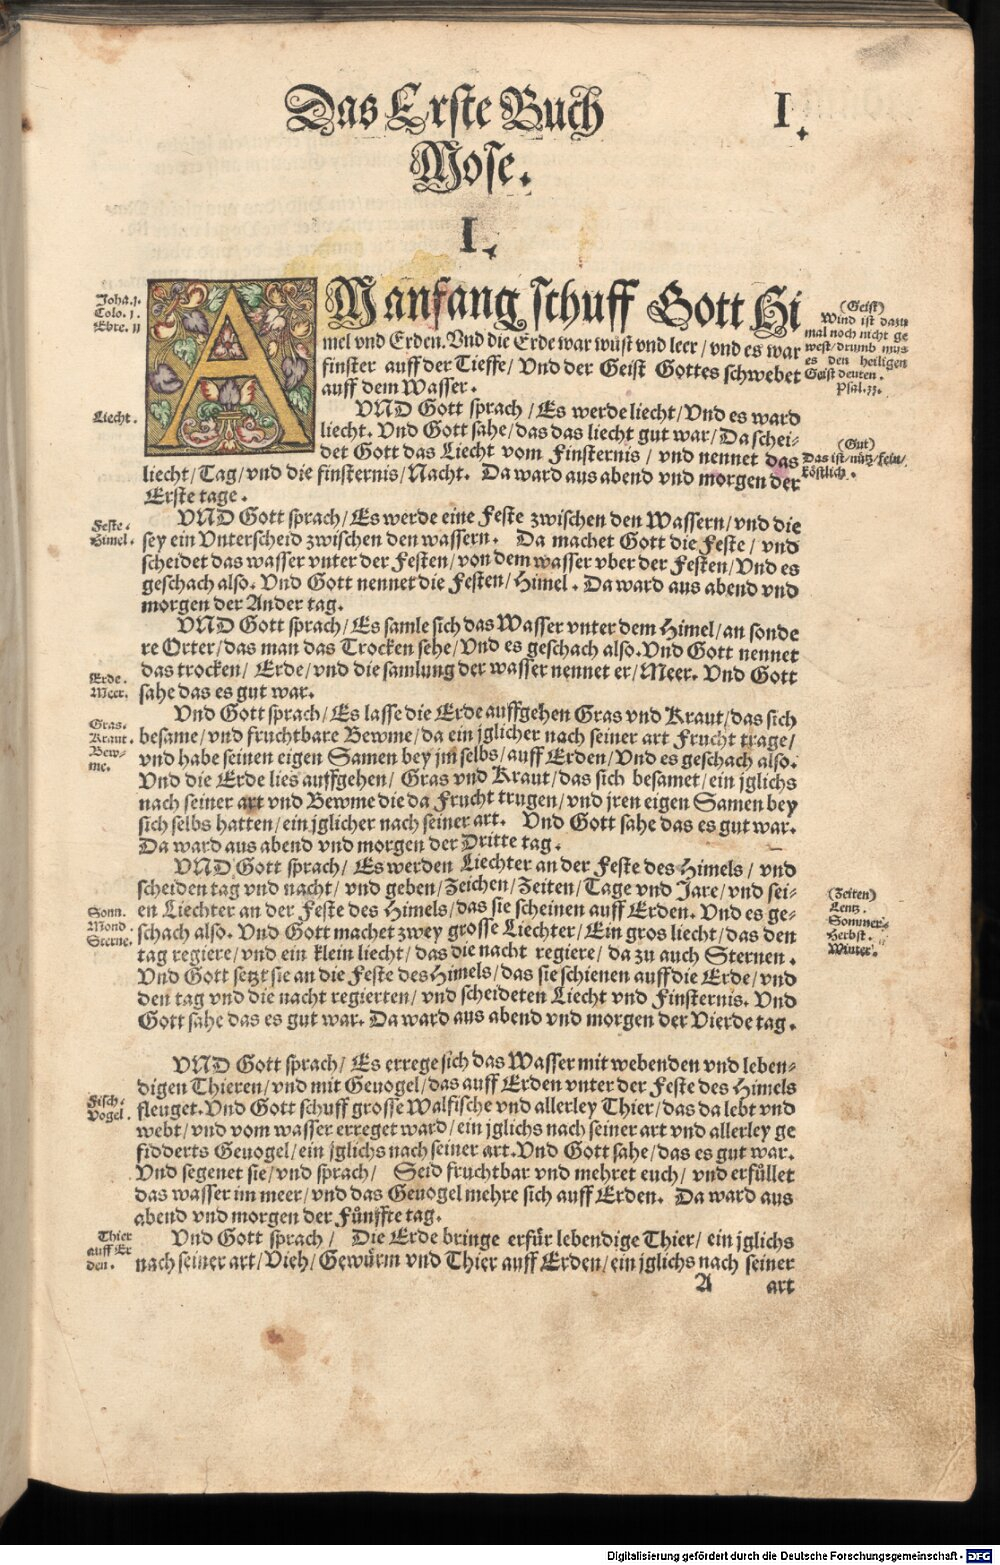 Das Erste Buch
I.
Mose.
I.
AM anfang schuff Gott Hi
mel vnd Erden. Vnd die Erde war wüst vnd leer / vnd es war
finster auff der Tieffe / Vnd der Geist Gottes schwebet
auff dem Wasser.
VND Gott sprach / Es werde liecht / Vnd es ward
liecht. Vnd Gott sahe / das das liecht gut war / Da schei-
det Gott das Liecht vom Finsternis / vnd nennet das
liecht / Tag / vnd die finsternis / Nacht. Da ward aus abend vnd morgen der
Erste tage.
VND Gott sprach / Es werde eine Feste zwischen den Wassern / vnd die
sey ein Vnterscheid zwischen den wassern. Da machet Gott die Feste / vnd
scheidet das wasser vnter der Festen / von dem wasser vber der Festen / Vnd es
geschach also. Vnd Gott nennet die Festen / Himel. Da ward aus abend vnd
morgen der Ander tag.
VND Gott sprach / Es samle sich das Wasser vnter dem Himel / an sonde
re Orter / das man das Trocken sehe / Vnd es geschach also. Vnd Gott nennet
das trocken / Erde / vnd die samlung der wasser nennet er / Meer. Vnd Gott
sahe das es gut war.
Vnd Gott sprach / Es lasse die Erde auffgehen Gras vnd Kraut / das sich
besame / vnd fruchtbare Bewme / da ein jglicher nach seiner art Frucht trage /
vnd habe seinen eigen Samen bey jm selbs / auff Erden / Vnd es geschach also.
Vnd die Erde lies auffgehen / Gras vnd Kraut / das sich besamet / ein jglichs
nach seiner art vnd Bewme die da Frucht trugen / vnd jren eigen Samen bey
sich selbs hatten / ein jglicher nach seiner art. Vnd Gott sahe das es gut war.
Da ward aus abend vnd morgen der Dritte tag.
VND Gott sprach / Es werden Liechter an der Feste des Himels / vnd
scheiden tag vnd nacht / vnd geben / Zeichen / Zeiten / Tage vnd Jare / vnd sei-
en Liechter an der Feste des Himels / das sie scheinen auff Erden. Vnd es ge-
schach also. Vnd Gott machet zwey grosse Liechter / Ein gros liecht / das den
tag regiere / vnd ein klein liecht / das die nacht regiere / da zu auch Sternen.
Vnd Gott setzt sie an die Feste des Himels / das sie schienen auff die Erde / vnd
den tag vnd die nacht regierten / vnd scheideten Liecht vnd Finsternis. Vnd
Gott sahe das es gut war. Da ward aus abend vnd morgen der Vierde tag.
VND Gott sprach / Es errege sich das Wasser mit webenden vnd leben-
digen Thieren / vnd mit Geuogel / das auff Erden vnter der Feste des Himels
fleuget. Vnd Gott schuff grosse Walfische vnd allerley Thier / das da lebt vnd
webt / vnd vom wasser erreget ward / ein jglichs nach seiner art vnd allerley ge
fidderts Geuogel / ein jglichs nach seiner art. Vnd Gott sahe / das es gut war.
Vnd segenet sie / vnd sprach / Seid fruchtbar vnd mehret euch / vnd erfüllet
das wasser im meer / vnd das Geuogel mehre sich auff Erden. Da ward aus
abend vnd morgen der Fünffte tag.
Vnd Gott sprach / Die Erde bringe erfür lebendige Thier / ein jglichs
nach seiner art / Vieh / Gewürm vnd Thier auff Erden / ein jglichs nach seiner
A art
Joha. 1.
Colo. 1.
Ebre. 11
Liecht.
Feste.
Himel.
Erde.
Meer.
Gras.
Kraut.
Bew-
me.
Sonn.
Mond
Sterne.
Fisch.
Vogel.
Thier
auff Er
den.
(Geist)
Wind ist dazu
mal noch nicht ge
west / drumb mus
es den heiligen
Geist deuten.
Psal. 33.
(Gut)
Das ist / nütz / fein /
köstlich.
(Zeiten)
Lentz.
Sommer.
Herbst.
Winter.
Digitalisierung gefördert durch die Deutsche Forschungsgemeinschaft - DFG